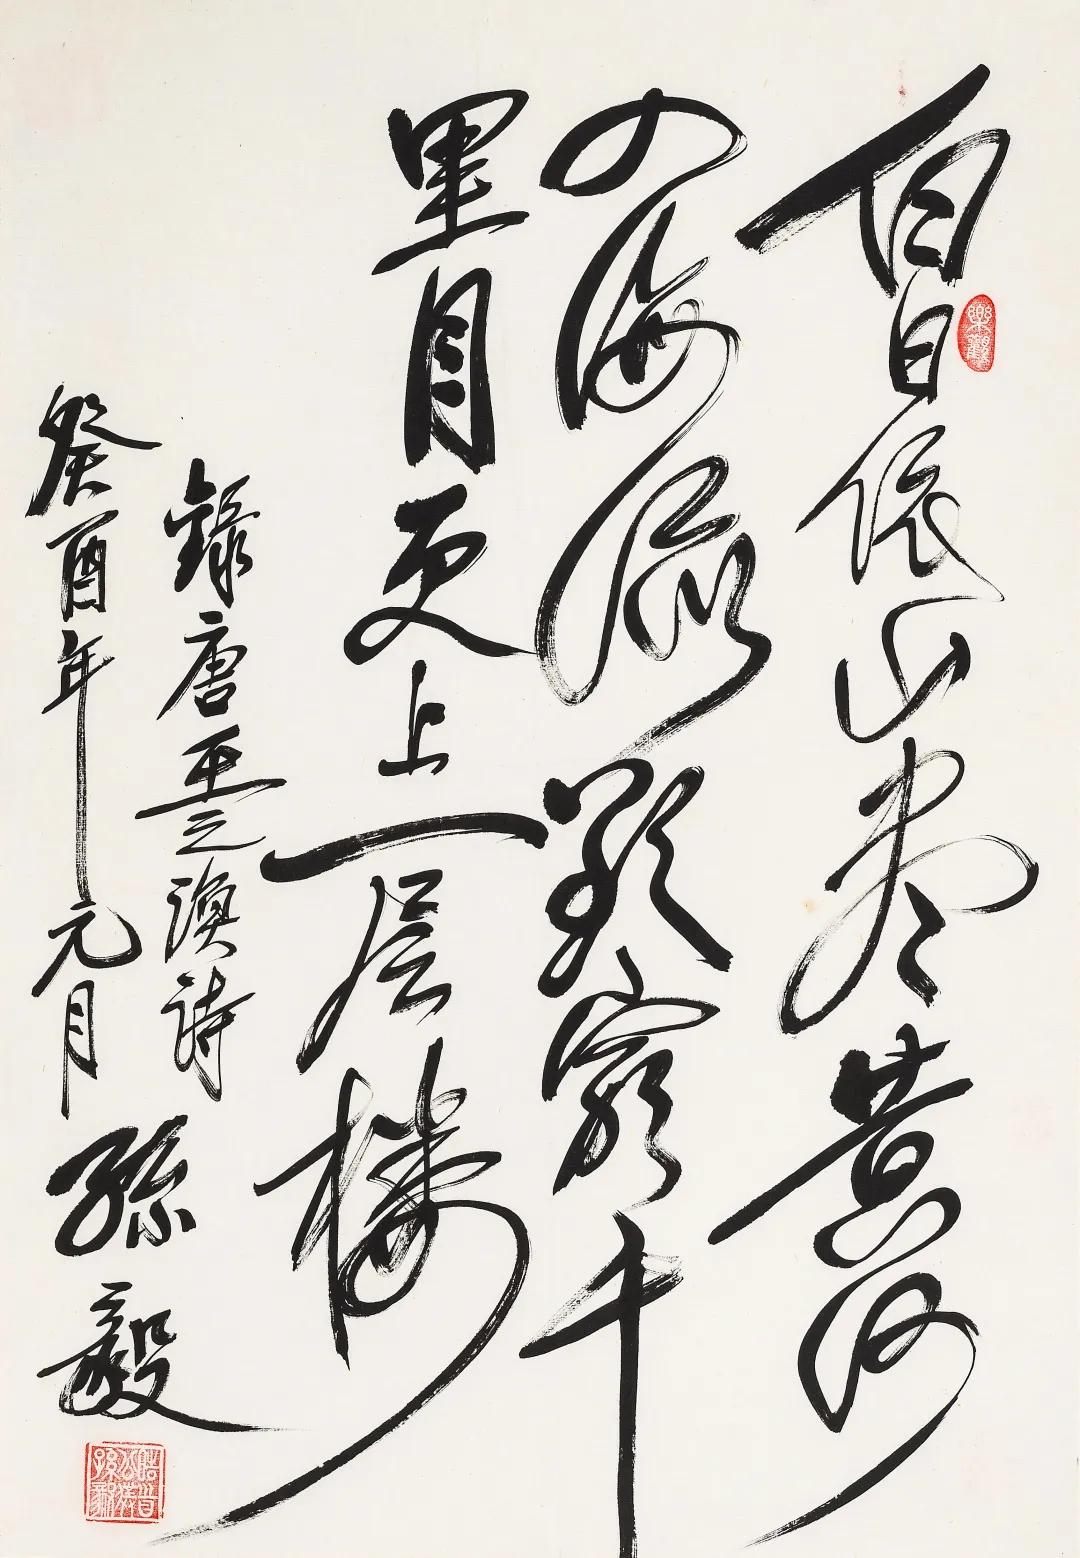 白日依山尽黄河
入海流欲窮千
里目更上一层楼
錄唐王之渙詩
癸酉年元月 孫毅
樂觀